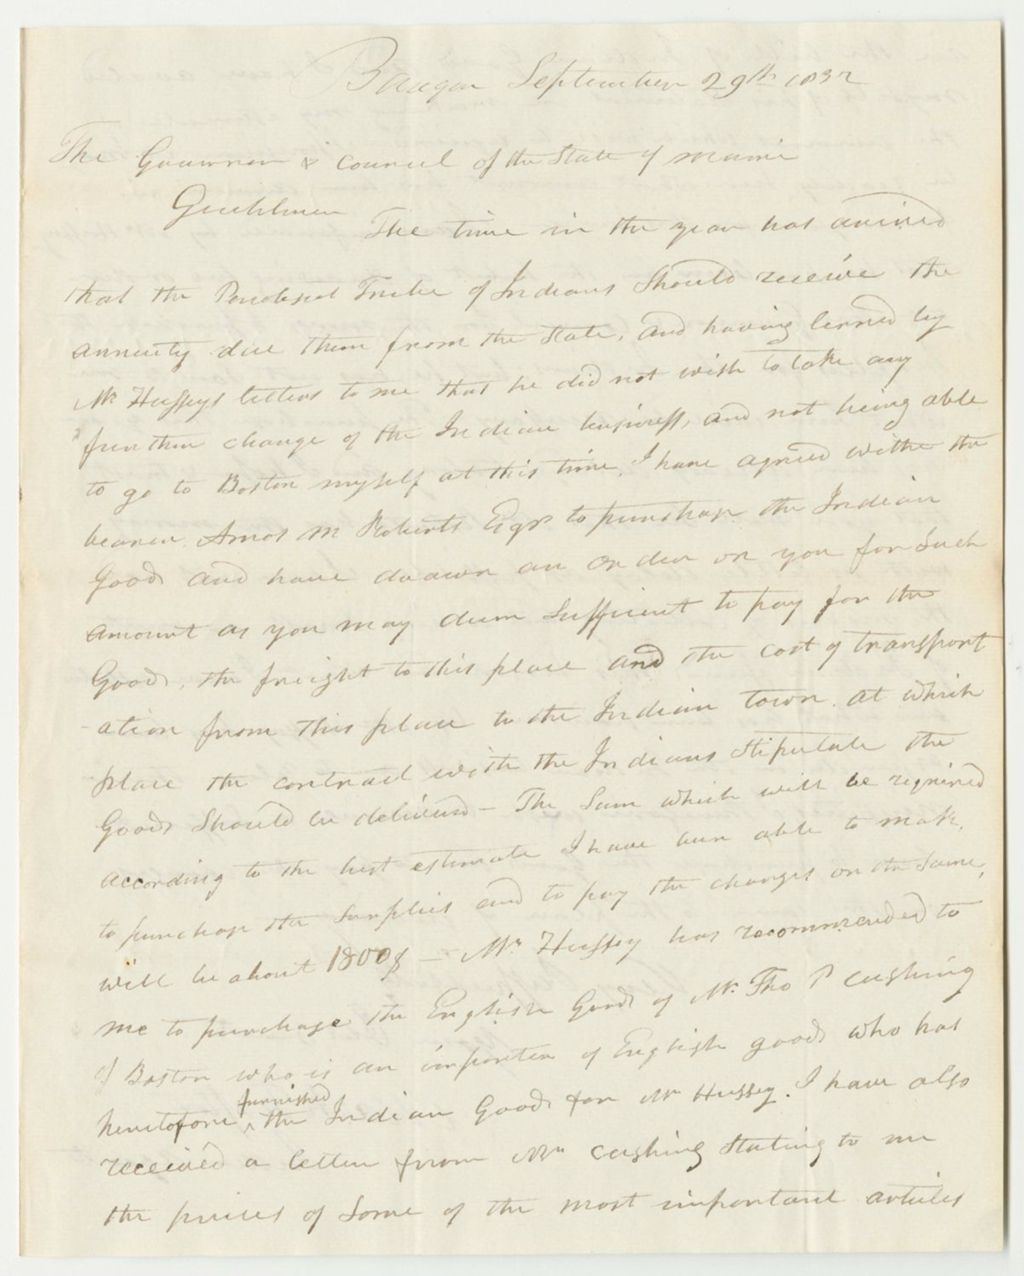 Bangor September 29th 1832
The Governor & Council of the State of Maine
Gentlemen The time in the year has arrived
that the Penobscot Tribe of Indians Should receive the
annuity due them from the State, and having lerned by
Mr Husseys letters to me that he did not wish to take any
further charge of the Indian business, and not being able
to go to Boston myself at this time, I have agreed withe the
bearer Amos M Roberts Esqr to purchase the Indian
Goods and have drawn an order on you for Such
amount as you may deem Sufficient to pay for the
Goods, the freight to this place and the cost of transport
ation from this place to the Indian town. at which
place the contract with the Indians Stipulate the
Goods Should be delivered – The Sum which will be required
according to the best estimate I have been able to make,
to purchase the Supplies and to pay the charges on the Same,
will be about 1800$ – Mr Hussey has recommended to
me to purchase the English Goods of Mr. Tho P Cushing
of Boston who is an importer of English goods who has
heretofore ^furnished the Indian Goods for Mr Hussey. I have also
received a letter from Mr Cushing Stating to me
the prices of Some of the most important articles